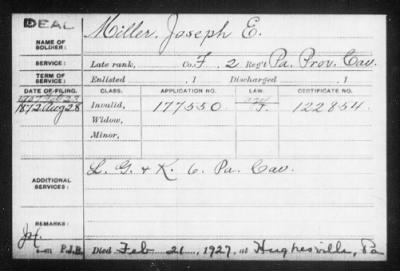 DEAL
NAME OF SOLDIER: Miller, Joseph E.
SERVICE: Late rank, Co. F, 2 Reg't Pa. Prov. Cav.
TERM OF SERVICE: Enlisted , 1 Discharged , 1
DATE OF FILING. CLASS. APPLICATION NO. LAW. CERTIFICATE NO.
1872 Aug 28 Invalid, 177550 122854
Widow,
Minor,
ADDITIONAL SERVICES: L. G. & K. 6. Pa. Cav.
REMARKS:
P.J.B. Died Feb 21, 1927, at Hughesville, Pa